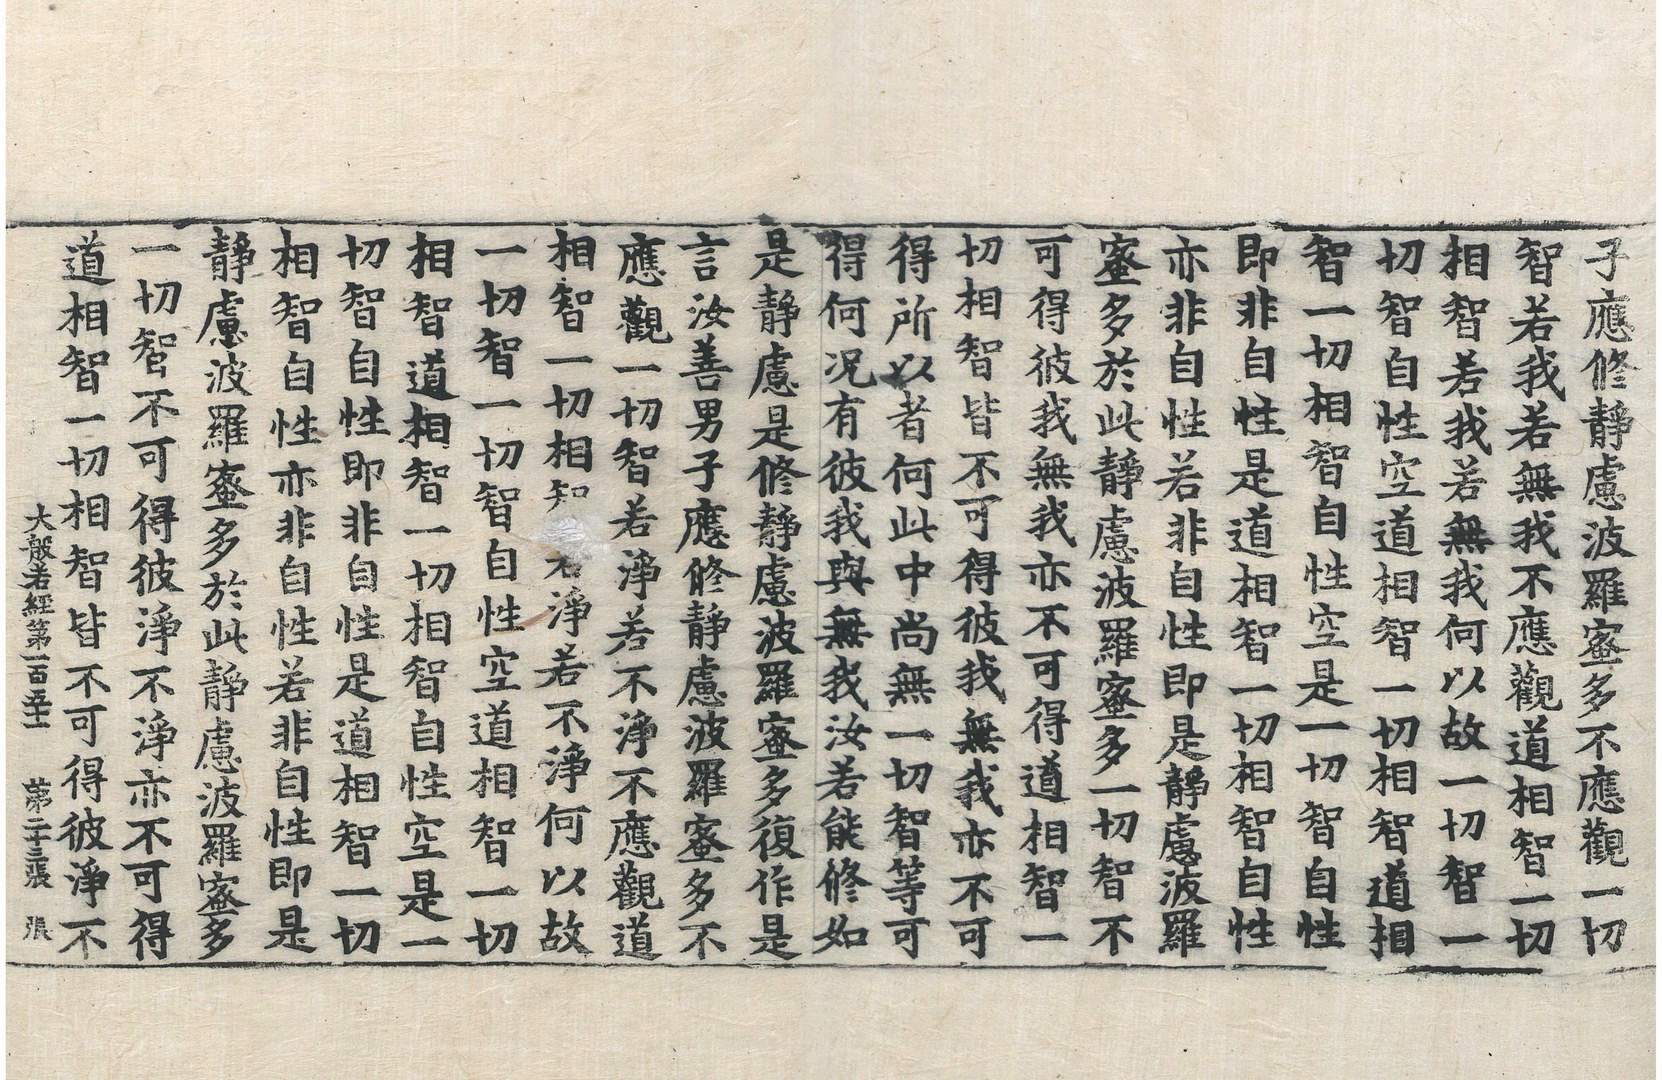 子應修靜慮波羅蜜多不應觀一切
智若我若無我不應觀道相智一切
相智若我若無我何以故一切智一
切智自性空道相智一切相智道相
智一切相智自性空是一切智自性
即非自性是道相智一切相智自性
亦非自性若非自性即是靜慮波羅
蜜多於此靜慮波羅蜜多一切智不
可得彼我無我亦不可得道相智一
切相智皆不可得彼我無我亦不可
得所以者何此中尚無一切智等可
得何況有彼我與無我汝若能修如
是靜慮是修靜慮波羅蜜多復作是
言汝善男子應修靜慮波羅蜜多不
應觀一切智若淨若不淨不應觀道
相智一切相智若淨若不淨何以故
一切智一切智自性空道相智一切
相智道相智一切相智自性空是一
切智自性即非自性是道相智一切
相智自性亦非自性若非自性即是
靜慮波羅蜜多於此靜慮波羅蜜多
一切智不可得彼淨不淨亦不可得
道相智一切相智皆不可得彼淨不
大般若經第一百五十一 第二十三張 張